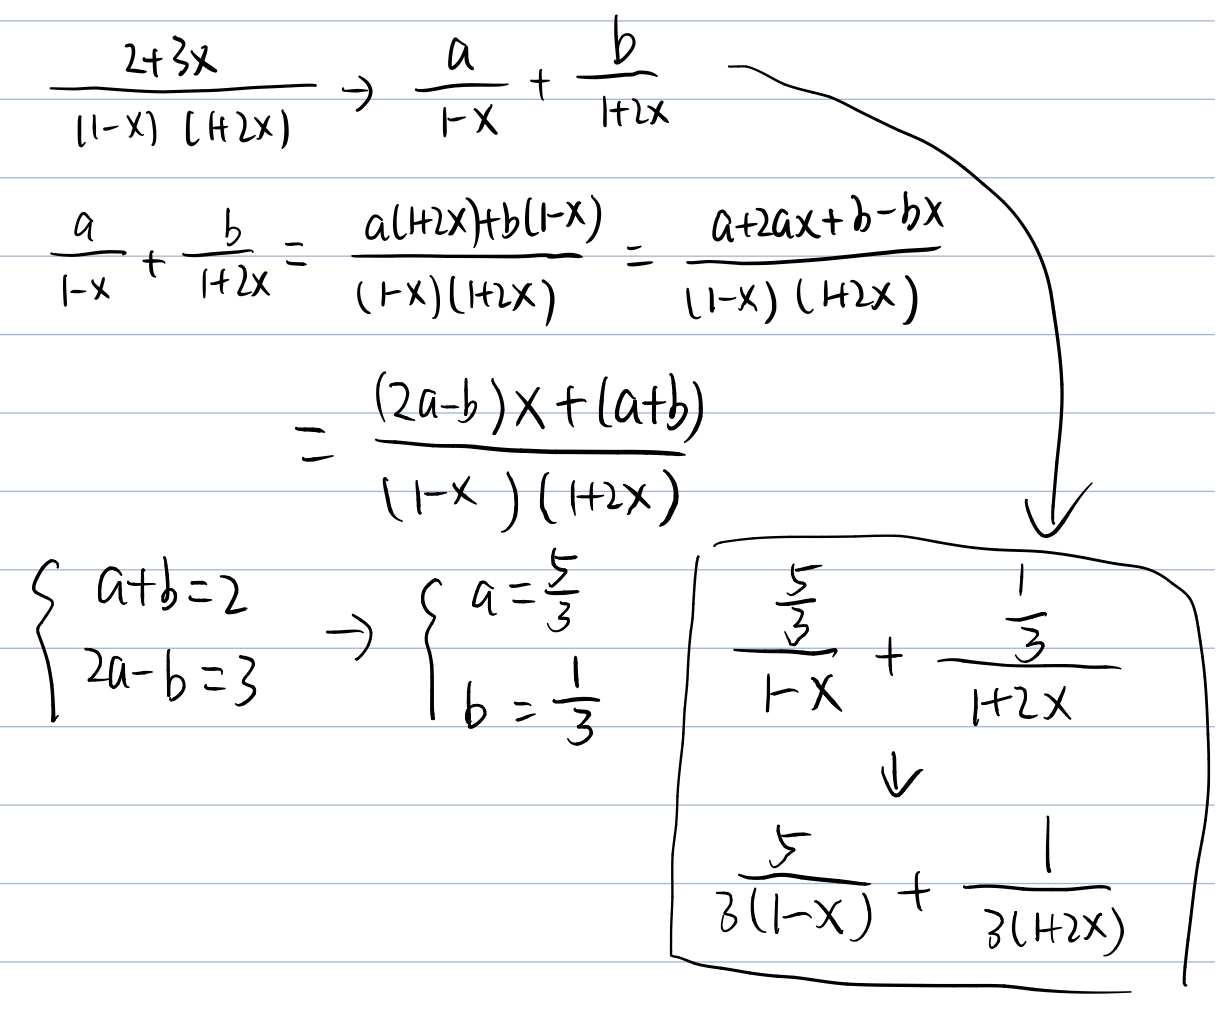 \frac{2+3x}{(1-x)(1+2x)} → \frac{a}{1-x} + \frac{b}{1+2x}
\frac{a}{1-x} + \frac{b}{1+2x} = \frac{a(1+2x)+b(1-x)}{(1-x)(1+2x)} = \frac{a+2ax+b-bx}{(1-x)(1+2x)}
= \frac{(2a-b)x+(a+b)}{(1-x)(1+2x)}
\begin{cases} a+b=2 \\ 2a-b=3 \end{cases} → \begin{cases} a=\frac{5}{3} \\ b=\frac{1}{3} \end{cases}
\frac{\frac{5}{3}}{1-x} + \frac{\frac{1}{3}}{1+2x}
↓
\frac{5}{3(1-x)} + \frac{1}{3(1+2x)}